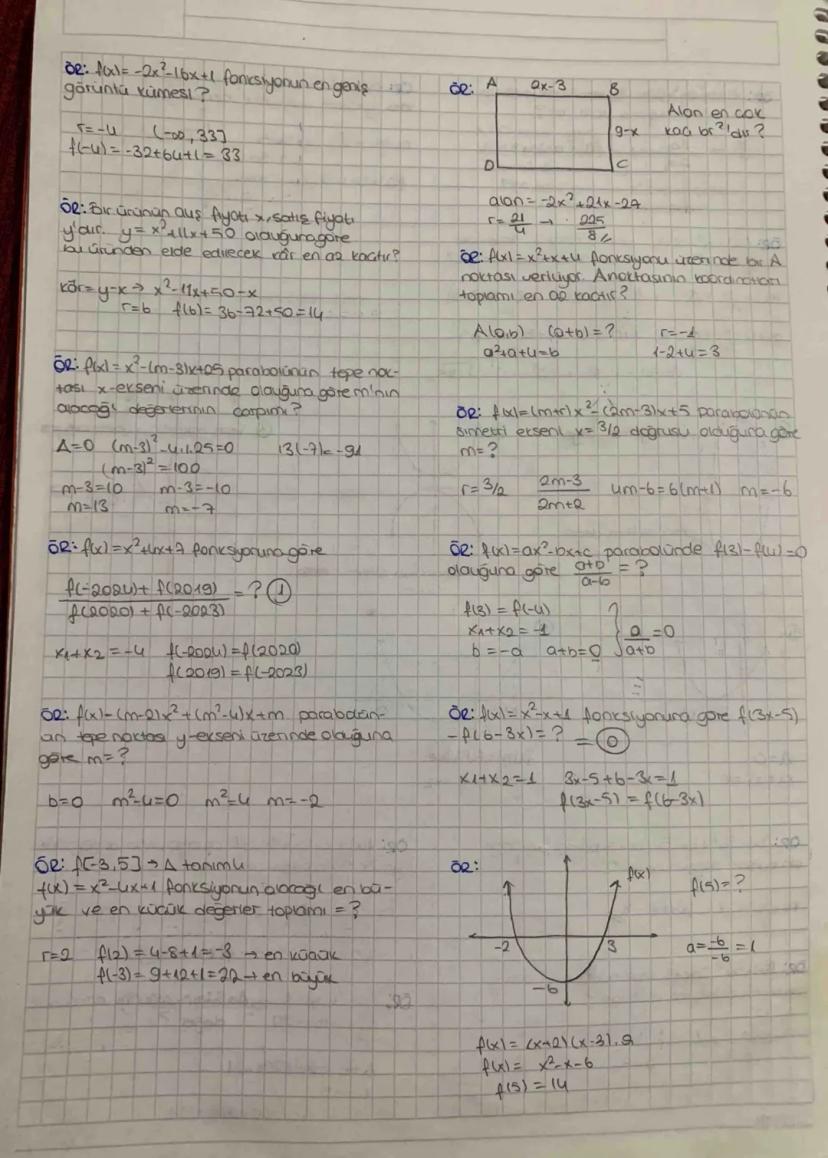 ÖR: f(x) = -2x²-16x+1 fonksiyonun en geniş
görüntü kümesi?
r=-4 (-∞, 33]
f(-4) = -32+64+1 = 33
ÖR: Bir ürünün alış fiyatı x, satış fiyatı
y'dir. y = x²-11x+50 olduğuna göre
bu üründen elde edilecek kâr en az kaçtır?
kâr = y-x → x²-11x+50-x
r=6 f(6) = 36-72+50 = 14
ÖR: f(x) = x²-(m-3)x+25 parabolünün tepe nok-
tası x-ekseni üzerinde olduğuna göre m'nin
alacağı değerlerinin çarpımı?
Δ=0 (m-3)²-4.1.25=0 13(-7)=-91
(m-3)² = 100
m-3=10 m-3=-10
m=13 m=-7
ÖR: f(x) = x²+4x+7 fonksiyonuna göre
f(-2024) + f(2019) = ? 1
f(2020) + f(-2023)
x₁+x₂ = -4 f(-2024) = f(2020)
f(2019) = f(-2023)
ÖR: f(x) = (m-2)x²+(m²-4)x+m parabolün-
ün tepe noktası y-ekseni üzerinde olduğuna
göre m=?
b=0 m²-4=0 m²=4 m=-2
ÖR: f[-3,5] → Δ tanımlı
f(x) = x²-4x+1 fonksiyonun alacağı en bü-
yük ve en küçük değerler toplamı = ?
r=2 f(2) = 4-8+1 = -3 → en küçük
f(-3) = 9+12+1 = 22 → en büyük
ÖR: A 2x-3 B
9-x
D C
Alan en çok
kaç br²'dir?
alan = -2x²+21x-27
r = 21/4 → 225/8
ÖR: f(x) = x²+x+4 fonksiyonu üzerinde bir A
noktası veriliyor. A noktasının koordinatları
toplamı en az kaçtır?
A(a,b) (a+b) = ? r=-1
a²+a+4=b 1-2+4 = 3
ÖR: f(x) = (m+1)x²-(2m-3)x+5 parabolünün
simetri ekseni x = 3/2 doğrusu olduğuna göre
m=?
r = 3/2 2m-3/2m+2 4m-6 = 6(m+1) m=-6
ÖR: f(x) = ax²-bx+c parabolünde f(3)-f(4)=0
olduğuna göre a+b/a-b = ?
f(3) = f(-4)
x₁+x₂ = -1
b = -a a+b=0 } a/a+b = 0
ÖR: f(x) = x²-x+1 fonksiyonuna göre f(3x-5)
-f(6-3x) = ? = 0
x₁+x₂=1 3x-5+6-3x=1
f(3x-5) = f(6-3x)
ÖR: f(x)
-2 3
-6
f(5) = ?
a = -6/-6 = 1
f(x) = (x+2)(x-3).a
f(x) = x²-x-6
f(5) = 14